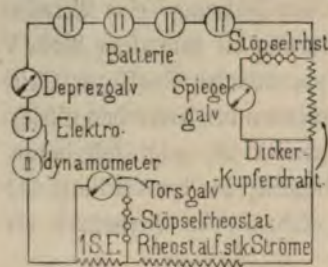 Batterie
Stöpselrhst
Deprezgalv
Spiegel
-galv
I
Elektro-
II
dynamometer
Dicker-
Kupferdraht.
Tors.galv
Stöpselrheostat
1 S.E.
Rheostat f. stk Ströme